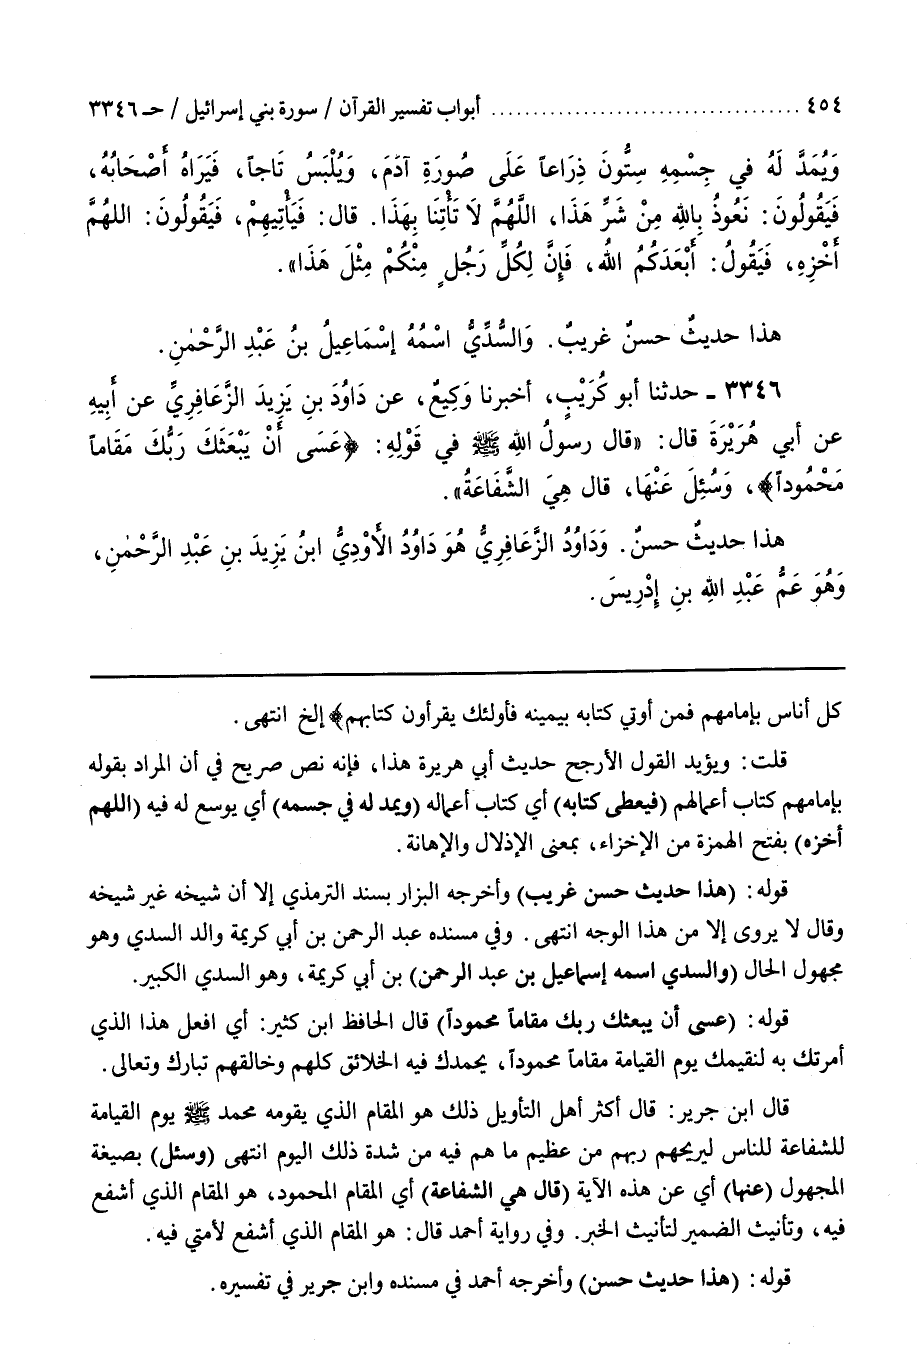 ٤٥٤ .................................. أبواب تفسير القرآن / سورة بني إسرائيل / حـ ٣٣٤٦
وَيُمَدَّ لَهُ في جِسْمِهِ سِتُّونَ ذِرَاعاً عَلَى صُورَةِ آدَمَ، وَيُلْبَسُ تَاجاً، فَيَرَاهُ أَصْحَابُهُ،
فَيَقُولُونَ: نَعُوذُ بِاللهِ مِنْ شَرِّ هَذَا، اللَّهُمَّ لَا تَأْتِنَا بِهَذَا. قال: فَيَأْتِيهِمْ، فَيَقُولُونَ: اللهُمَّ
أَخْزِهِ، فَيَقُولُ: أَبْعَدَكُمُ اللهُ، فَإِنَّ لِكُلِّ رَجُلٍ مِنْكُمْ مِثْلَ هَذَا».
هذا حديثٌ حسنٌ غريبٌ. وَالسُّدِّيُّ اسْمُهُ إِسْمَاعِيلُ بنُ عَبْدِ الرَّحْمٰنِ.
٣٣٤٦ ـ حدثنا أبو كُرَيْبٍ، أخبرنا وَكِيعٌ، عن دَاوُدَ بنِ يَزِيدَ الزَّعَافِرِيِّ عن أَبِيهِ
عن أبي هُرَيْرَةَ قال: «قال رسولُ الله ﷺ في قَوْلِهِ: ﴿عَسَى أَنْ يَبْعَثَكَ رَبُّكَ مَقَاماً
مَحْمُوداً﴾، وَسُئِلَ عَنْهَا، قال هِيَ الشَّفَاعَةُ».
هذا حديثٌ حسنٌ. وَدَاوُدُ الزَّعَافِرِيُّ هُوَ دَاوُدُ الأَوْدِيُّ ابنُ يَزِيدَ بنِ عَبْدِ الرَّحْمٰنِ،
وَهُوَ عَمُّ عَبْدِ اللهِ بنِ إِدْرِيسَ.
كل أناس بإمامهم فمن أوتي كتابه بيمينه فأولئك يقرأون كتابهم﴾ إلخ انتهى.
قلت: ويؤيد القول الأرجح حديث أبي هريرة هذا، فإنه نص صريح في أن المراد بقوله
بإمامهم كتاب أعمالهم (فيعطى كتابه) أي كتاب أعماله (ويمد له في جسمه) أي يوسع له فيه (اللهم
أخزه) بفتح الهمزة من الإخزاء، بمعنى الإذلال والإهانة.
قوله: (هذا حديث حسن غريب) وأخرجه البزار بسند الترمذي إلا أن شيخه غير شيخه
وقال لا يروى إلا من هذا الوجه انتهى. وفي مسنده عبد الرحمن بن أبي كريمة والد السدي وهو
مجهول الحال (والسدي اسمه إسماعيل بن عبد الرحمن) بن أبي كريمة، وهو السدي الكبير.
قوله: (عسى أن يبعثك ربك مقاماً محموداً) قال الحافظ ابن كثير: أي افعل هذا الذي
أمرتك به لنقيمك يوم القيامة مقاماً محموداً، يحمدك فيه الخلائق كلهم وخالقهم تبارك وتعالى.
قال ابن جرير: قال أكثر أهل التأويل ذلك هو المقام الذي يقومه محمد ﷺ يوم القيامة
للشفاعة للناس ليريحهم ربهم من عظيم ما هم فيه من شدة ذلك اليوم انتهى (وسئل) بصيغة
المجهول (عنها) أي عن هذه الآية (قال هي الشفاعة) أي المقام المحمود، هو المقام الذي أشفع
فيه، وتأنيث الضمير لتأنيث الخبر. وفي رواية أحمد قال: هو المقام الذي أشفع لأمتي فيه.
قوله: (هذا حديث حسن) وأخرجه أحمد في مسنده وابن جرير في تفسيره.